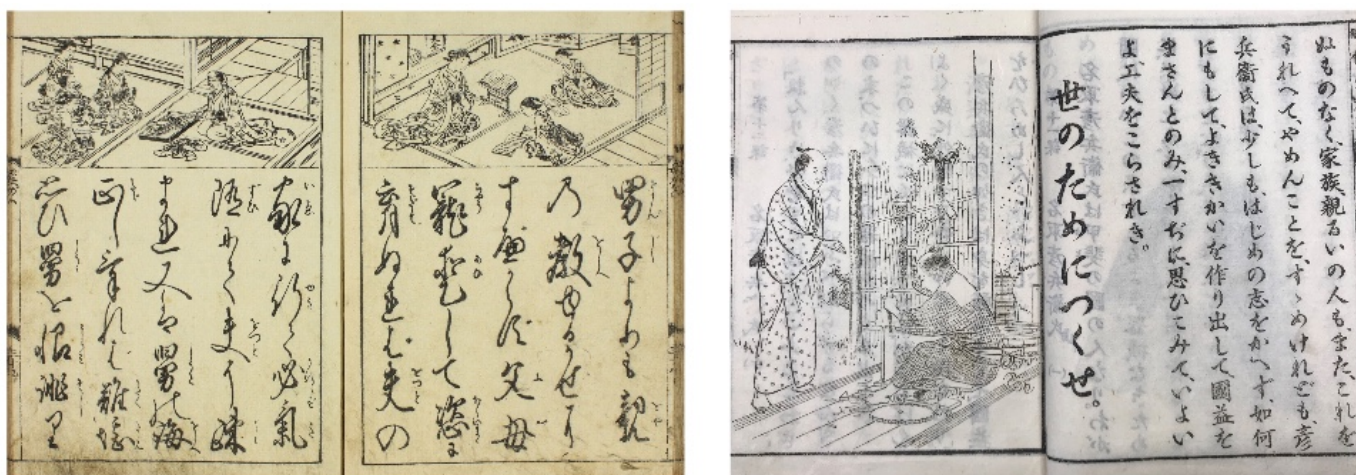 男子よりも親
乃教ゆるかせに
すべからず父母
寵愛して恣に
育ぬれば夫の
家に行て必氣
随にて夫に疎
まれ又は舅の誨
正しければ難堪
思ひ舅を恨誹り
ぬものなく、家族親るいの人も、また、これを
うれへて、やめんことを、すゝめけれども、彦
兵衞氏は、少しも、はじめの志をかへず、如何
にもして、よききかいを作り出して、國益を
まさんとのみ、一すぢに、思ひこみて、いよい
よ、工夫をこらされき。
世のためにつくせ